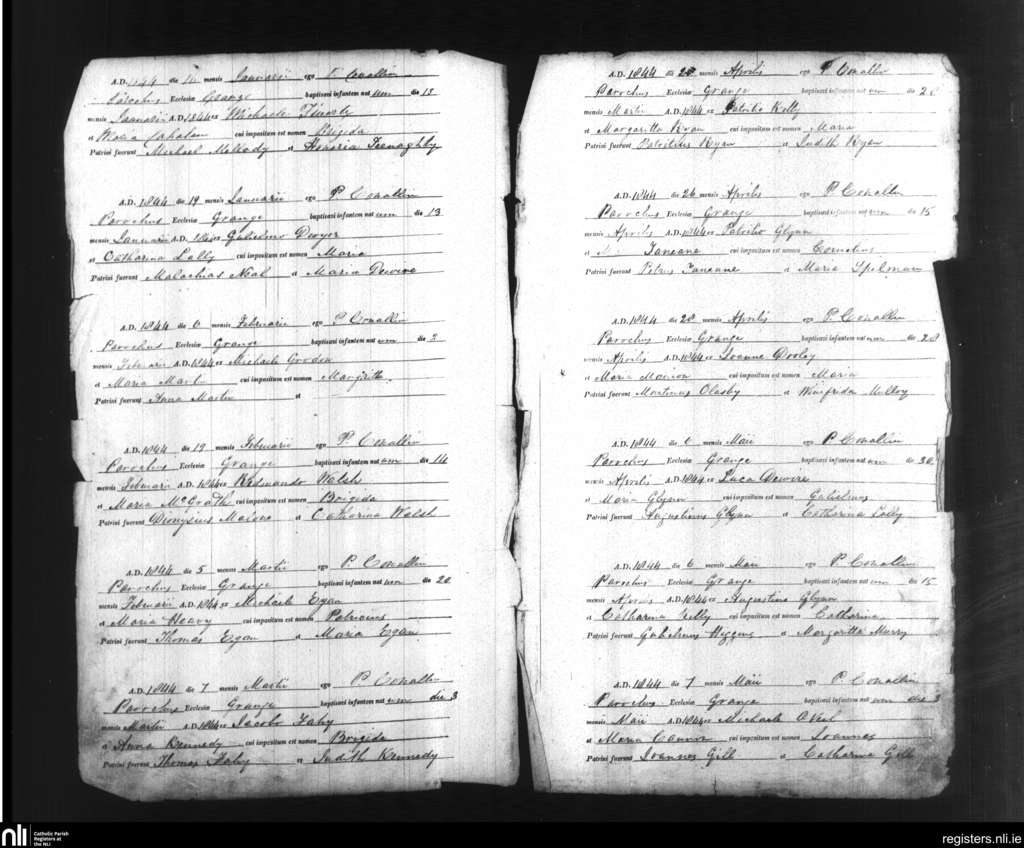 A.D. 1844 die mensis Januarii ego P. Conallin
Parochus Ecclesiæ Grange baptisavi infantem natum die 13
mensis Januarii A.D. 1844 ex Michaele
et Maria cui impositum est nomen Brigida
Patrini fuerunt Michael Mellody et Honoria
A.D. 1844 die 19 mensis Januarii ego P. Conallin
Parochus Ecclesiæ Grange baptisavi infantem natum die 13
mensis Januarii A.D. ex Gulielmo Dwyer
et Catharina Lally cui impositum est nomen Maria
Patrini fuerunt Malachias Neal et Maria Dewere
A.D. 1844 die 6 mensis Februarii ego P. Conallin
Parochus Ecclesiæ Grange baptisavi infantem natum die 2
mensis Februarii A.D. 1844 ex Michaele
et Maria Martin cui impositum est nomen
Patrini fuerunt Anna Martin et
A.D. 1844 die 19 mensis Februarii ego P. Conallin
Parochus Ecclesiæ Grange baptisavi infantem natum die 14
mensis Februarii A.D. 1844 ex Redmundo Walsh
et Maria McGrath cui impositum est nomen Brigida
Patrini fuerunt Dionysius Malone et Catharina Walsh
A.D. 1844 die 5 mensis Martii ego P. Conallin
Parochus Ecclesiæ Grange baptisavi infantem natum die 20
mensis Februarii A.D. 1844 ex Michaele Egan
et Maria Heavy cui impositum est nomen Patricius
Patrini fuerunt Thomas Egan et Maria Egan
A.D. 1844 die 7 mensis Martii ego P. Conallin
Parochus Ecclesiæ Grange baptisavi infantem natum die 3
mensis Martii A.D. 1844 ex Jacobo Fahy
et Anna Kennedy cui impositum est nomen Brigida
Patrini fuerunt Thomas Fahy et Judith Kennedy
A.D. 1844 die mensis Aprilis ego P. Conallin
Parochus Ecclesiæ Grange baptisavi infantem natum die
mensis Martii A.D. 1844 ex Patritio Kelly
et Margaritta Ryan cui impositum est nomen Maria
Patrini fuerunt Patritius Ryan et Judith Ryan
A.D. 1844 die 26 mensis Aprilis ego P. Conallin
Parochus Ecclesiæ Grange baptisavi infantem natum die 15
mensis Aprilis A.D. 1844 ex Patritio Glynn
et cui impositum est nomen Cornelius
Patrini fuerunt Petrus et Maria Spelman
A.D. 1844 die 28 mensis Aprilis ego P. Conallin
Parochus Ecclesiæ Grange baptisavi infantem natum die 28
mensis Aprilis A.D. 1844 ex Joanne Dooley
et Maria Manion cui impositum est nomen Maria
Patrini fuerunt Martinus et Winifrida
A.D. 1844 die 6 mensis Maii ego P. Conallin
Parochus Ecclesiæ Grange baptisavi infantem natum die 30
mensis Aprilis A.D. 1844 ex Luca Dewere
et Maria Glynn cui impositum est nomen Gulielmus
Patrini fuerunt Augustinus Glynn et Catharina Lally
A.D. 1844 die 6 mensis Maii ego P. Conallin
Parochus Ecclesiæ Grange baptisavi infantem natum die 15
mensis Aprilis A.D. 1844 ex Augustino Glynn
et Catharina Kelly cui impositum est nomen Catharina
Patrini fuerunt Gulielmus Higgins et Margaritta Murry
A.D. 1844 die 7 mensis Maii ego P. Conallin
Parochus Ecclesiæ Grange baptisavi infantem natum die 3
mensis Maii A.D. 1844 ex Michaele
et Maria cui impositum est nomen Joannes
Patrini fuerunt Joannes Gill et Catharina Gill
nli Catholic Parish
Registers at
the NLI
registers.nli.ie